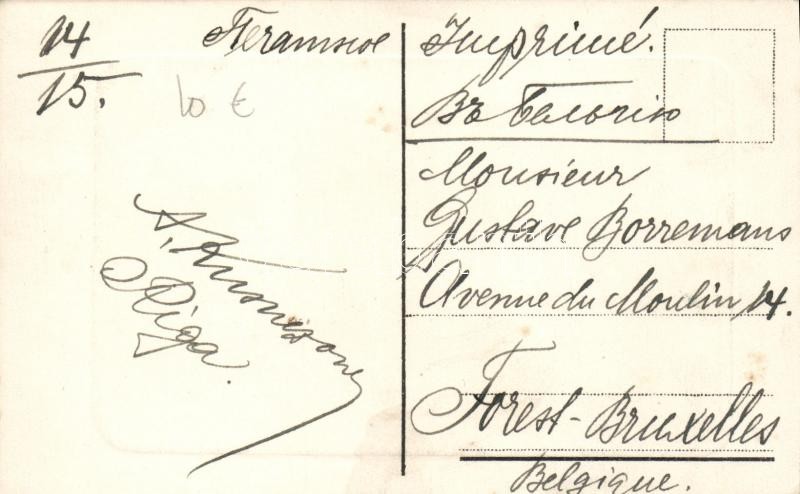 14
15.
10 €
Печатное
Imprimé.
Въ Бельгію
Monsieur
Gustave Borremans
Avenue du Moulin 14.
Forest-Bruxelles
Belgique.
A.
Riga.